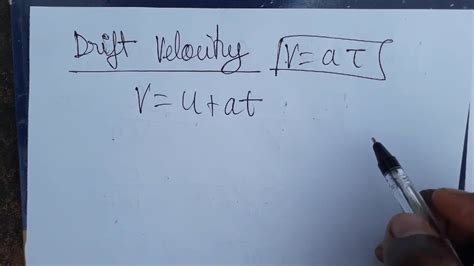 Drift Velocity V = a τ
V = u + at